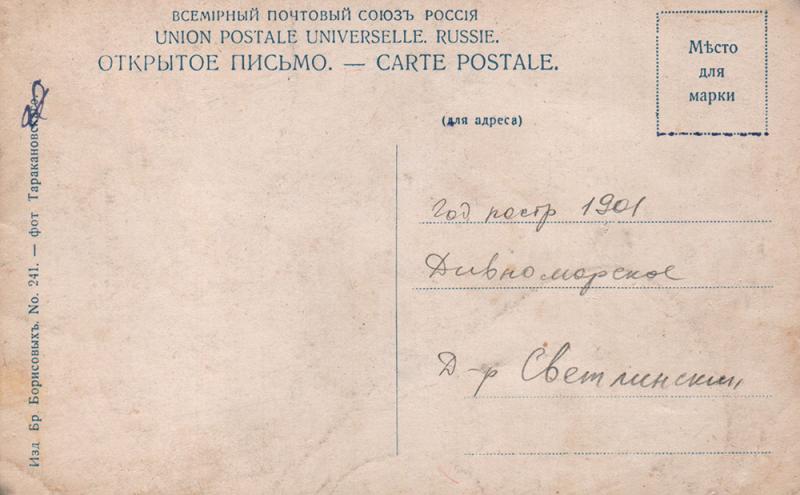 ВСЕМІРНЫЙ ПОЧТОВЫЙ СОЮЗЪ РОССІЯ
UNION POSTALE UNIVERSELLE. RUSSIE.
ОТКРЫТОЕ ПИСЬМО. — CARTE POSTALE.
Мѣсто
для
марки
(для адреса)
Год постр 1901
Дивноморское
Д-р Светлинский
Изд Бр Борисовыхъ. No. 241. — фот Таракановскаго.